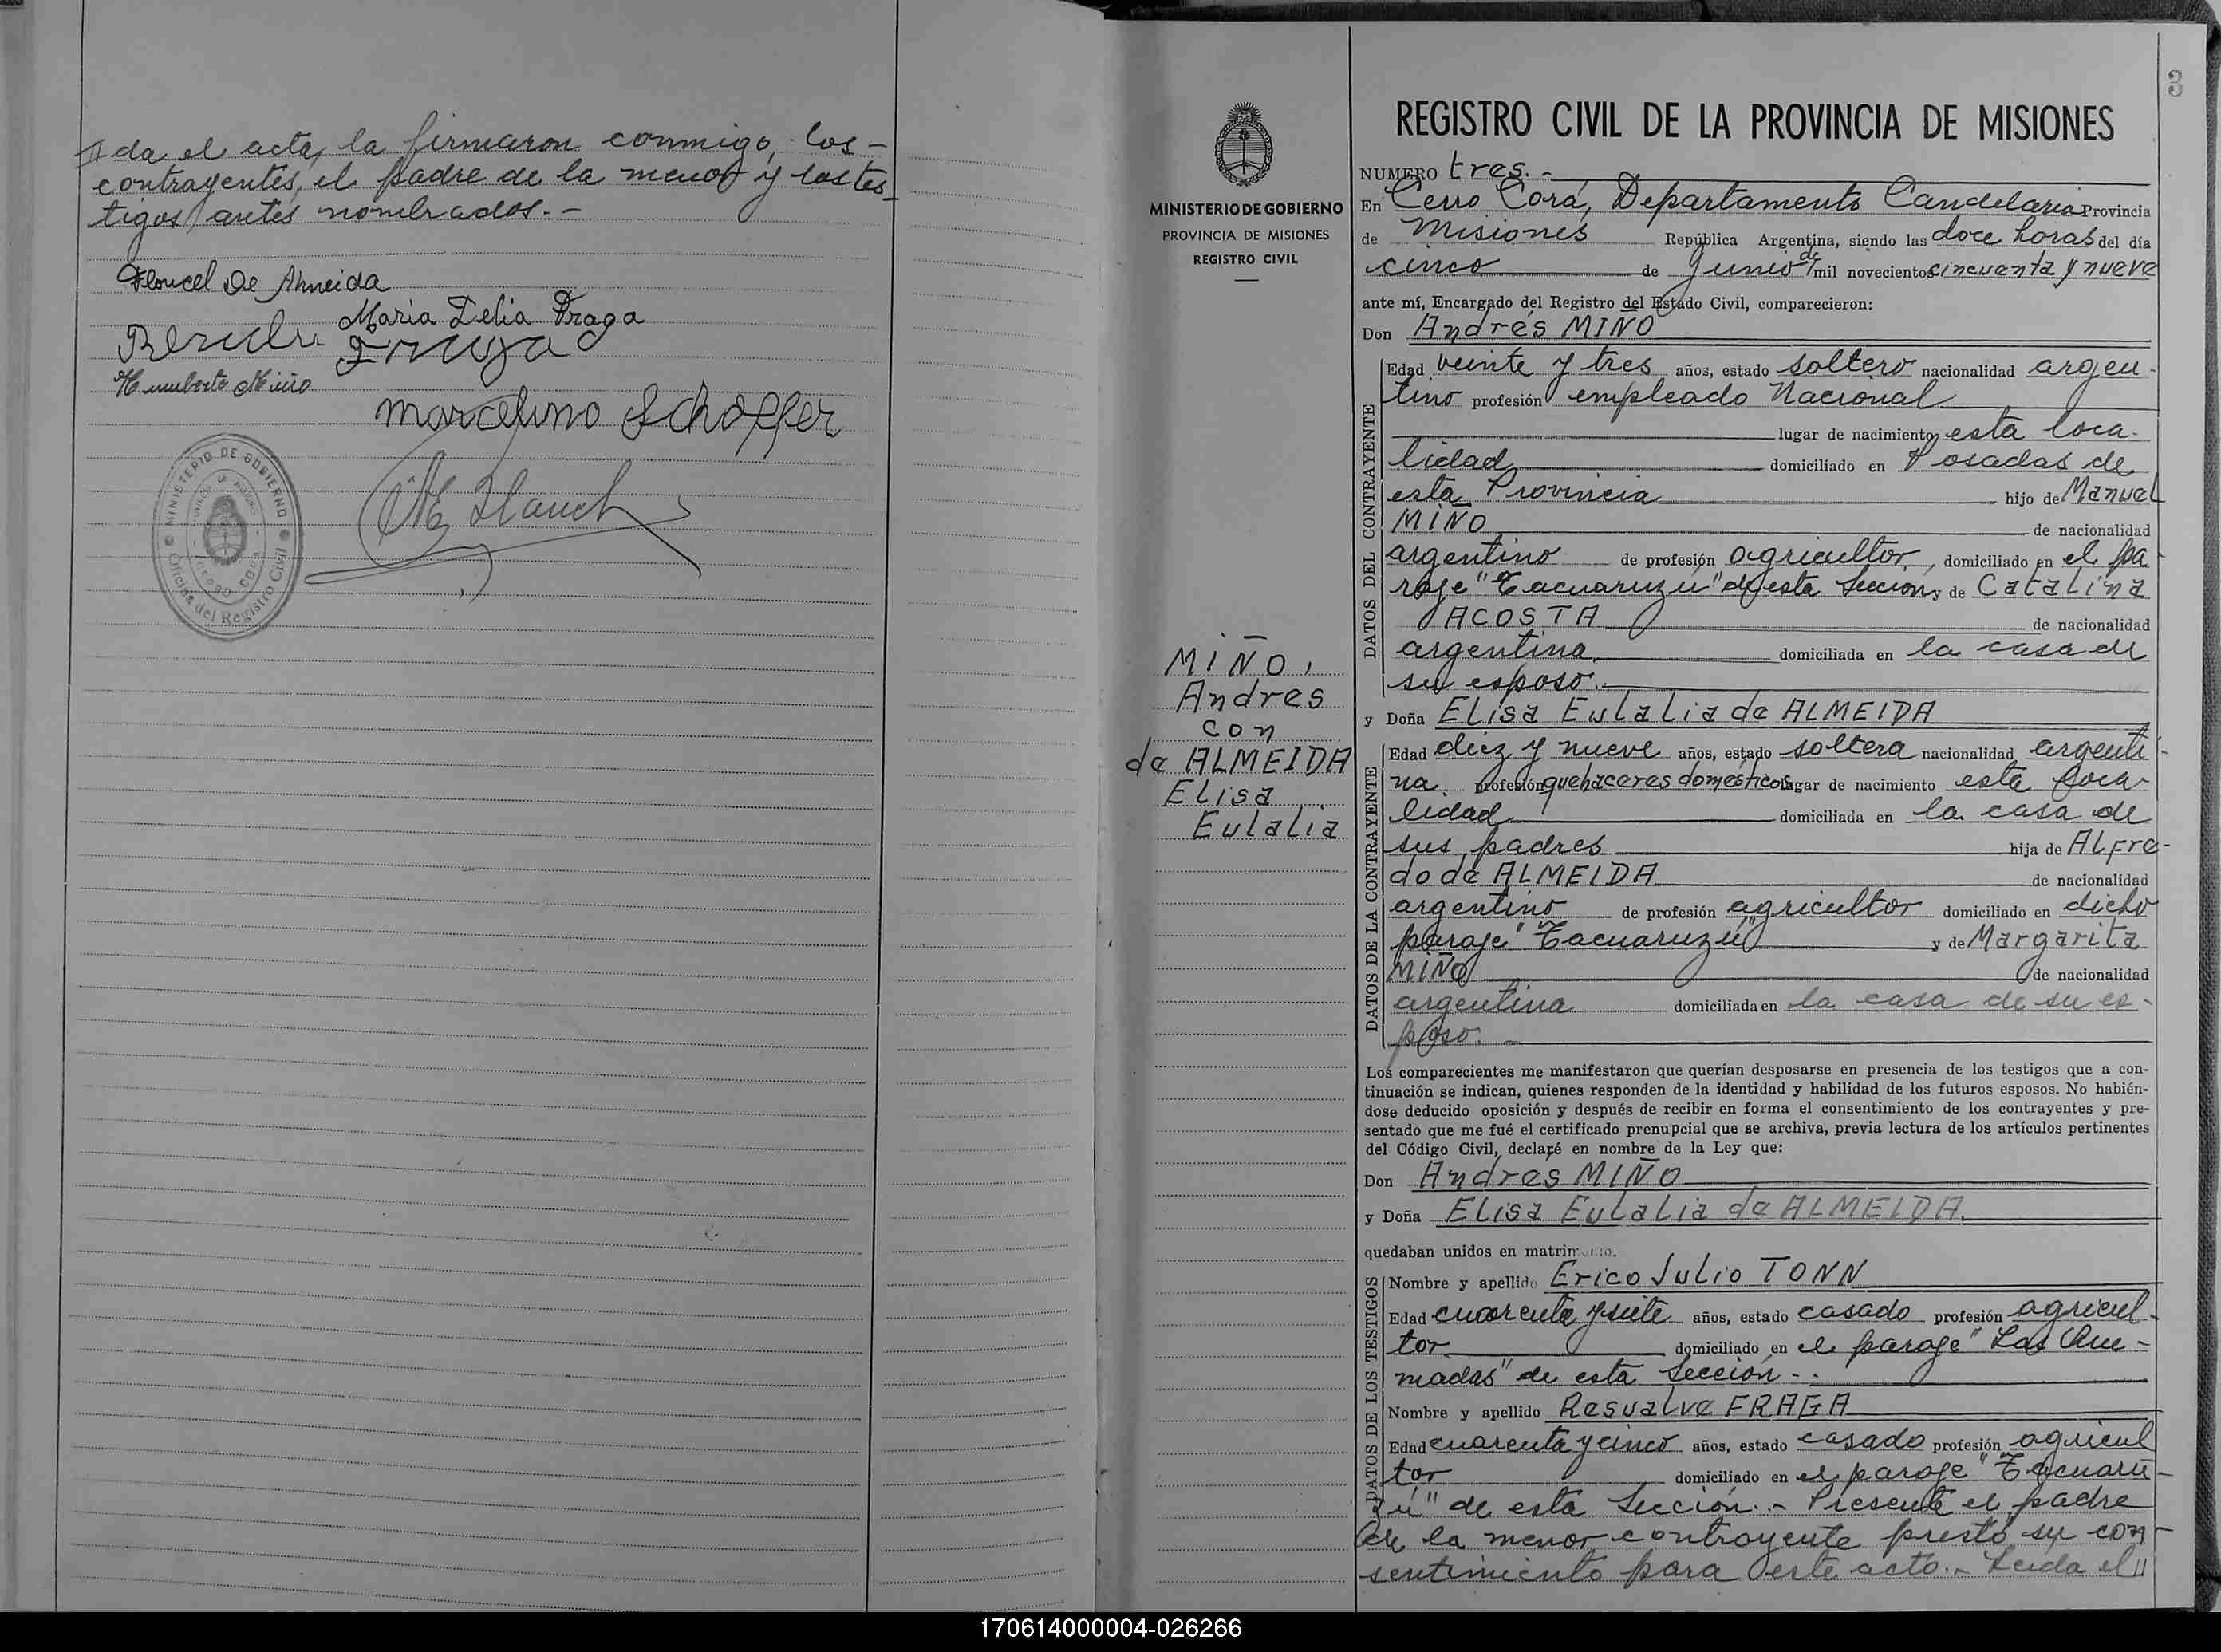 da el acta, la firmaron conmigo, los -
contrayentes, el padre de la menor y los tes_
tigos antes nombrados. -
Floucel De Almeida
Maria Delia Fraga
Humberto Miño
marcelino Schoffer
MINISTERIO DE GOBIERNO
Oficina del Registro Civil
3
MINISTERIO DE GOBIERNO
PROVINCIA DE MISIONES
REGISTRO CIVIL
MIÑO,
Andres
con
de ALMEIDA
Elisa
Eulalia
REGISTRO CIVIL DE LA PROVINCIA DE MISIONES
NUMERO tres. -
En Cerro Corá, Departamento Candelaria Provincia
de Misiones República Argentina, siendo las doce horas del día
cinco de Junio de mil novecientos cincuenta y nueve
ante mí, Encargado del Registro del Estado Civil, comparecieron:
Don Andrés MIÑO
DATOS DEL CONTRAYENTE
Edad veinte y tres años, estado soltero nacionalidad argen-
tino profesión empleado Nacional
lugar de nacimiento esta loca-
lidad domiciliado en Posadas de
esta Provincia hijo de Manuel
MIÑO de nacionalidad
argentino de profesión agricultor, domiciliado en el pa-
raje "Tacuaruzú" de esta Sección y de Catalina
ACOSTA de nacionalidad
argentina, domiciliada en la casa de
su esposo. -
y Doña Elisa Eulalia de ALMEIDA
DATOS DE LA CONTRAYENTE
Edad diez y nueve años, estado soltera nacionalidad argenti-
na. profesión quehaceres domésticos lugar de nacimiento esta loca-
lidad domiciliada en la casa de
sus padres hija de Alfre-
do de ALMEIDA de nacionalidad
argentino de profesión agricultor domiciliado en dicho
paraje "Tacuaruzú" y de Margarita
MIÑO de nacionalidad
argentina domiciliada en la casa de su es-
poso. -
Los comparecientes me manifestaron que querían desposarse en presencia de los testigos que a con-
tinuación se indican, quienes responden de la identidad y habilidad de los futuros esposos. No habién-
dose deducido oposición y después de recibir en forma el consentimiento de los contrayentes y pre-
sentado que me fué el certificado prenupcial que se archiva, previa lectura de los artículos pertinentes
del Código Civil, declaré en nombre de la Ley que:
Don Andres MIÑO
y Doña Elisa Eulalia de ALMEIDA.
quedaban unidos en matrimonio.
DATOS DE LOS TESTIGOS
Nombre y apellido Erico Julio TONN
Edad cuarenta y siete años, estado casado profesión agricul-
tor domiciliado en el paraje "Las Que-
madas" de esta Sección - .
Nombre y apellido Resualve FRAGA
Edad cuarenta y cinco años, estado casado profesión agricul
tor domiciliado en el paraje "Tacuaru-
zú" de esta Sección. - Presente el padre
de la menor contrayente prestó su con-
sentimiento para este acto. - Leida el
170614000004-026266